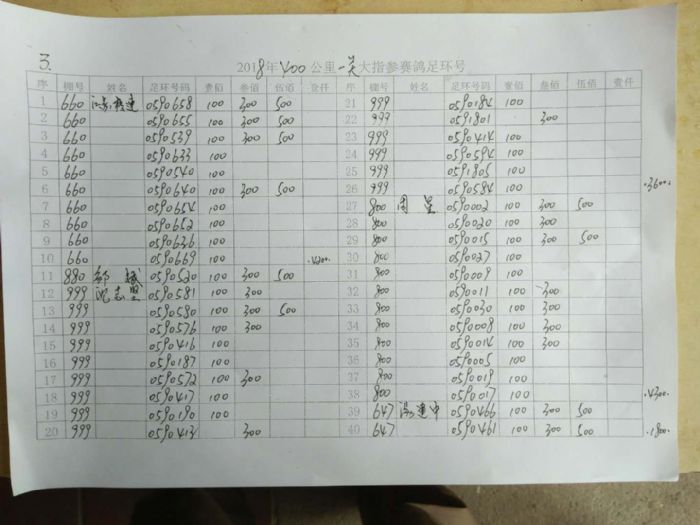 3.
2018年400公里一关大指参赛鸽足环号
序 棚号 姓名 足环号码 壹佰 叁佰 伍佰 壹仟 序 棚号 姓名 足环号码 壹佰 叁佰 伍佰 壹仟
1 660 0590658 100 300 500 21 999 0590184 100
2 660 0590655 100 300 500 22 999 0591801 300
3 660 0590539 100 300 500 23 999 0590414 100
4 660 0590633 100 24 999 0590594 100
5 660 0590540 100 25 999 0591805 100
6 660 0590640 100 300 500 26 999 0590584 100 3600.
7 660 0590654 100 27 800 周星 0590002 100 300 500
8 660 0590652 100 28 800 0590020 100 300
9 660 0590636 100 29 800 0590015 100 300 500
10 660 0590669 100 4200. 30 800 0590027 100
11 880 0590520 100 300 500 31 800 0590009 100
12 999 沈志坚 0590581 100 300 32 800 0590011 100 300
13 999 0590580 100 300 500 33 800 0590030 100 300
14 999 0590576 100 300 34 800 0590008 100 300
15 999 0590416 100 35 800 0590014 100 300
16 999 0590187 100 36 800 0590005 100
17 999 0590572 100 300 37 800 0590019 100
18 999 0590417 100 38 800 0590017 100 4300.
19 999 0590190 100 39 647 建中 0590466 100 300 500
20 999 0590413 300 40 647 0590461 100 300 500 1800.